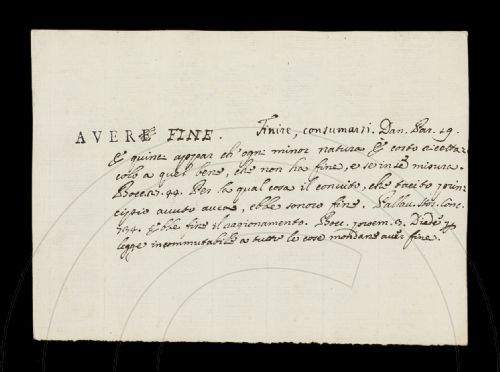 AVERE FINE. Finire, consumarsi. Dan. Par. 19.
E quinci appar ch'ogni minor natura È corto recetta-
colo a quel bene, che non ha fine, e se in se misura.
Bocc. n. 44. Per la qual cosa il convito, che tacito prin-
cipio avuto avea, ebbe sonoro fine. Pallav. Stor. Conc.
734. Ebbe fine il ragionamento. Bocc. proem. 3. Diede p
legge incommutabile a tutte le cose mondane aver fine.